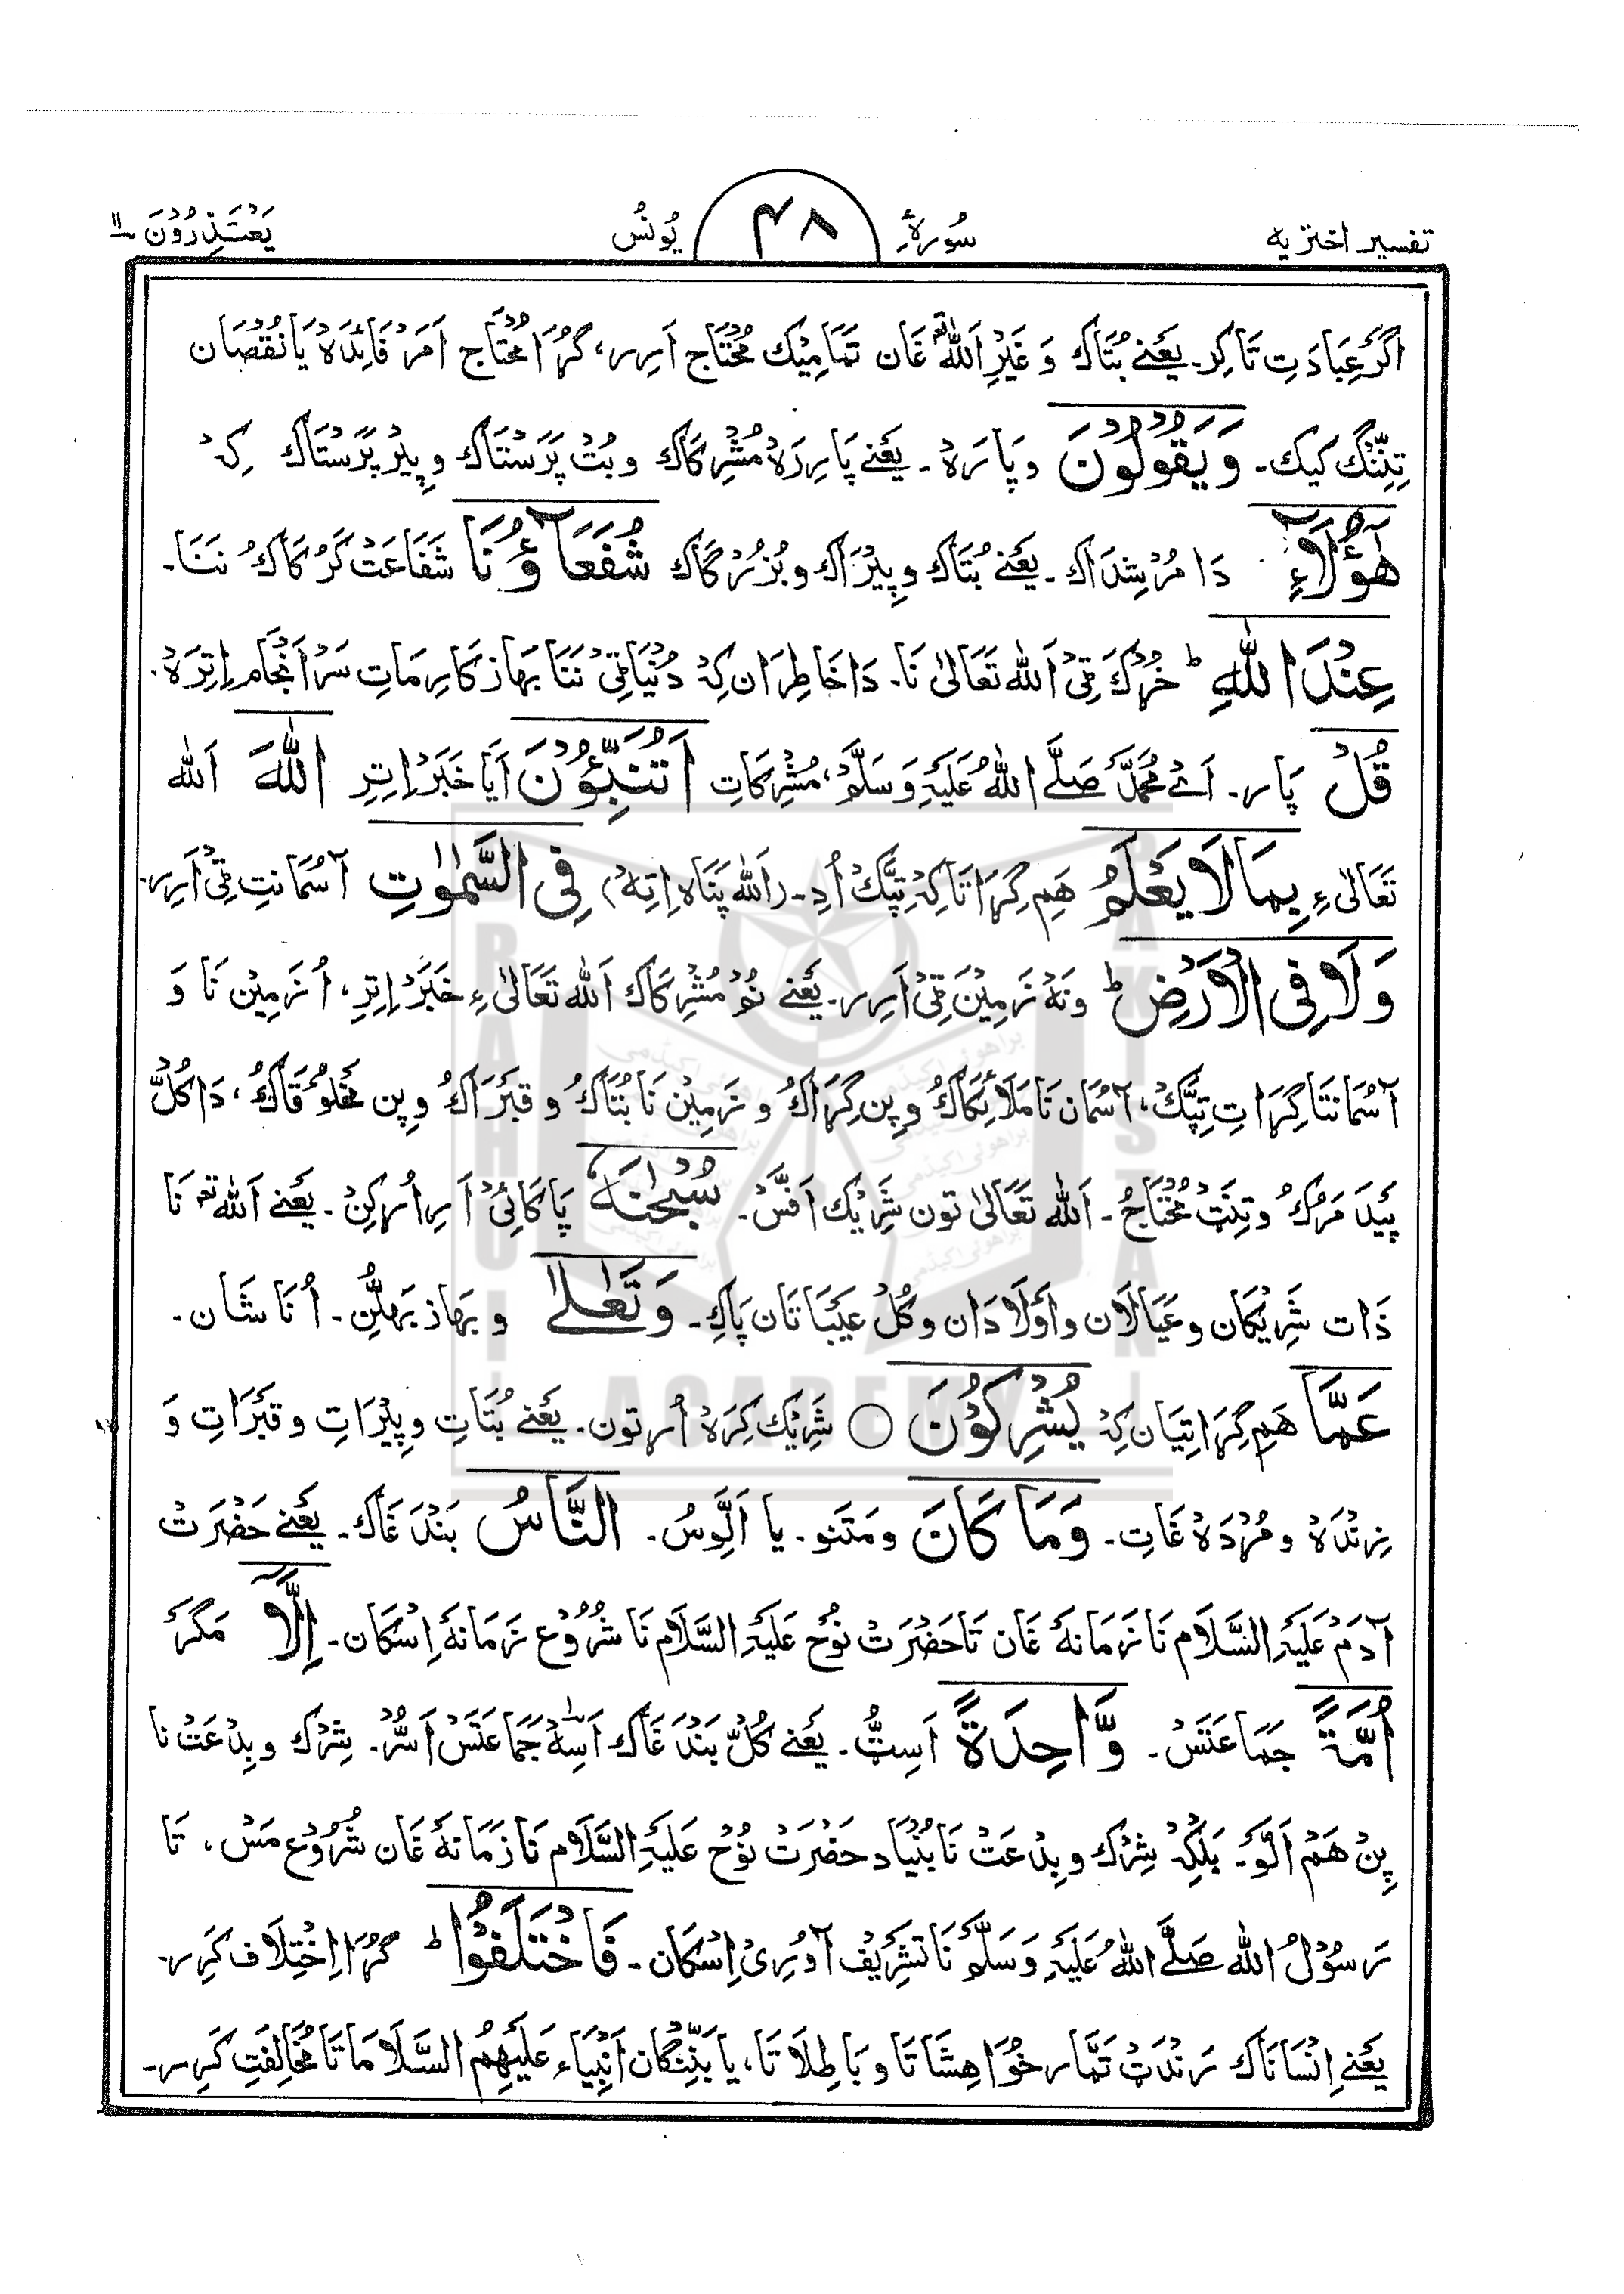 تفسیر اختریه سُورَۂِ ۴۸ یُونُسُ یَعْتَذِرُوْنَ ۱۱
اَگَرْ عِبَادَتِ تَا کِر۔ یَعْنے بُتَاک وَ غَیْرِ اَللہ تعہ غَان تَمَامِیْک مُحْتَاج اَرِر، گُرَا مُحْتَاج اَمَرْ فَائِدَہْ یَا نُقْصَان
تِنِّنْگ کَیک۔ وَیَقُوْلُوْنَ وپَارَہْ۔ یَعْنے پَارِرَہْ مُشْرِکَاک و بُتْ پَرَسْتَاک و پِیْر پَرَسْتَاک کِہْ
هٰٓؤُلَآءِ دَا مُرْشِدَاک۔ یَعْنے بُتَاک و پِیْرَاک و بُزُرْگَاک شُفَعَآؤُنَا شَفَاعَتْ کَرُکَاکُ نَنَا۔
عِنْدَ اللّٰهِ ؕ خُرْک قِیْ اَللہ تَعَالیٰ نَا۔ دَا خَاطِرَان کِہْ دُنْیَا قِیْ نَنَا بَھَاز کَارِمَاتِ سَرْاَنْجَام اِتِرَہْ۔
قُلْ پَار۔ اَےْ مُحَمَّدْ صَلَّے اللہُ عَلَیْہِ وَسَلَّمْ، مُشْرِکَاتِ اَتُنَبِّـُٔوْنَ اَیَا خَبَرْ اِتِرِ اللّٰهَ اَللہ
تَعَالیٰ ءِ بِمَا لَا یَعْلَمُ هَمِ گِرَاتَا کِہْ تِپَّکْ اُدِ۔ (اَللہ پَنَاہ اِتِہْ) فِی السَّمٰوٰتِ آسْمَانَتِ قِیْ اَرِر۔
وَلَا فِی الْاَرْضِ ؕ ونَہْ زَمِیْن قِیْ اَرِر۔ یَعْنے نُمْ مُشْرِکَاک اَللہ تَعَالیٰ ءِ خَبَرْ اِتِرِ، اُ زَمِیْن نَا وَ
آسْمَانَتَا گِرَاتِ تِپَّکْ، آسْمَان نَا مَلَائِکَاکُ و پِن گِرَاکُ و زَمِیْن نَا بُتَاکُ و قَبَرَاکُ و پِن مَخْلُوْقَاکُ، دَا کُلْ
پَیْدَ مَرُکُ و تِنَپْ مُحْتَاجُ۔ اَللہ تَعَالیٰ تون شَرِیْک اَفَّسْ۔ سُبْحٰنَهٗ پَاکَائِیْ اَرِ اُرکِنْ۔ یَعْنے اَللہ تعہ نَا
ذَات شَرِیْکَان و عَیَالَان و اَوْلَادَان و کُلْ عَیْبَاتَان پَاکِ۔ وَتَعٰلٰی و بَھَاز بَھلُّنِ۔ اُنَا شَان۔
عَمَّا هَمِ گِرَاتِیَان کِہْ یُشْرِکُوْنَ ◯ شَرِیْک کِرَہْ اُرتون۔ یَعْنے بُتَاتِ و پِیْرَاتِ و قَبَرَاتِ وَ
زِنْدَہْ و مُرْدَہْ غَاتِ۔ وَمَا کَانَ ومَتَنو۔ یا اَلّوْسُ۔ النَّاسُ بَنْدَغَاک۔ یَعْنے حَضْرَتْ
آدَمْ عَلَیْہِ السَّلَام نَا زَمَانَہْ غَان تَا حَضْرَتْ نُوْح عَلَیْہِ السَّلَام نَا شُرُوْع زَمَانَہْ اِسْکَان۔ اِلَّآ مَگَرْ
اُمَّةً جَمَاعَتَسْ۔ وَّاحِدَةً اَسِٹُّ۔ یَعْنے کُلْ بَنْدَغَاک اَسِہْ جَمَاعَتَسْ اَسُّرْ۔ شِرْک و بِدْعَتْ نا
پِنْ هَمْ اَلَّوْ۔ بَلْکِہْ شِرْک و بِدْعَتْ نَا بُنْیَاد حَضْرَتْ نُوْح عَلَیْہِ السَّلَام نَا زَمَانَہْ غَان شُرُوْع مَسْ، تَا
رَسُوْلُ اللہ صَلَّے اللہُ عَلَیْہِ وَسَلَّمْ نَا تَشْرِیْف آوُرِیْ اِسْکَان۔ فَاخْتَلَفُوْا ؕ گُرَا اِخْتِلَاف کَرِر۔
یَعْنے اِنْسَانَاک رَنْدَپْ تَمَّار خُوَاهِشَاتَا و بَاطِلَاتَا، یا بَنِّنْگَان اَنْبِیَاء عَلَیْهِمُ السَّلَامَاتَا مُخَالِفَتِ کَرِر۔